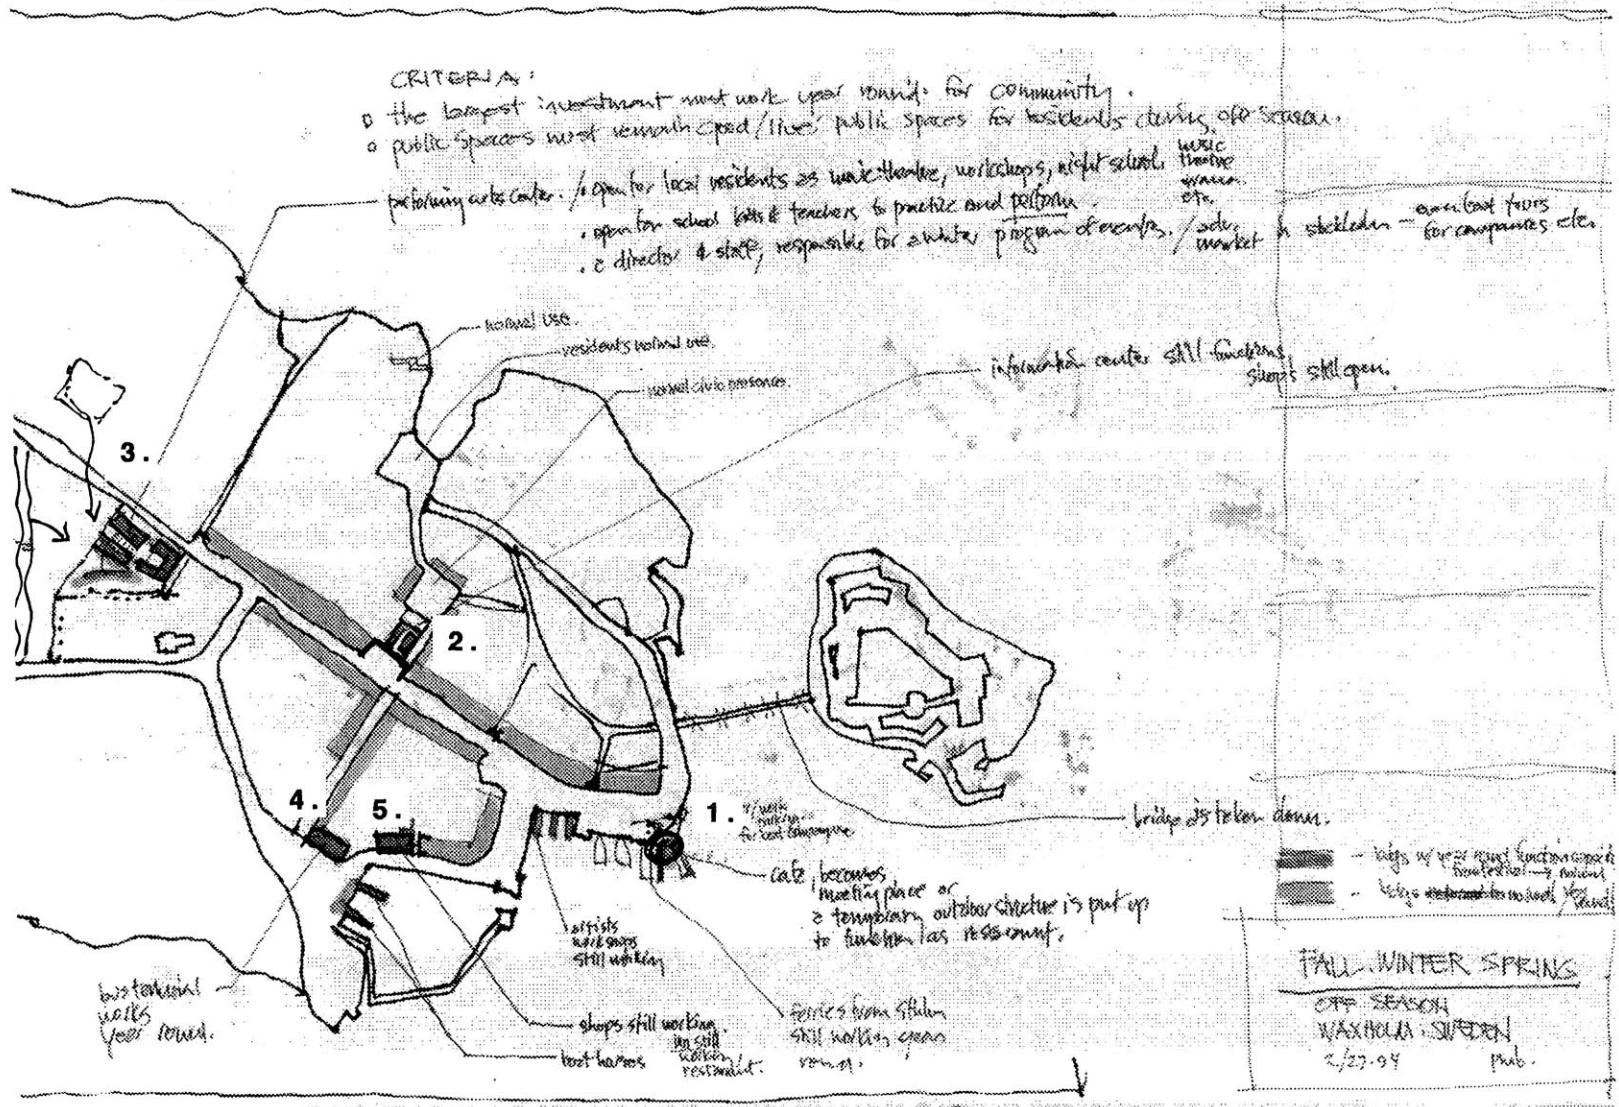 CRITERIA:
the largest investment must work year round for community.
public spaces must remain open/"live" public spaces for residents during off season.
performing arts center. / open for local residents as movie theatre, workshops, night school,
music
theatre
etc.
. open for school kids & teachers to practice and perform.
. a director & staff, responsible for a winter program of events. / adv.
market in stockholm —
for companies etc.
normal use.
residents normal use.
normal civic presence.
information center still functions
shops still open.
3.
2.
1.
4.
5.
bridge is taken down.
cafe becomes
meeting place or
a temporary outdoor structure is put up
to function as restaurant.
artists
workshops
still working
bus terminal
works
year round.
shops still working.
still
working
restaurant.
boat houses
ferries from
still working year
round.
FALL. WINTER SPRING
OFF SEASON
WAXHOLM. SWEDEN
2/27.94